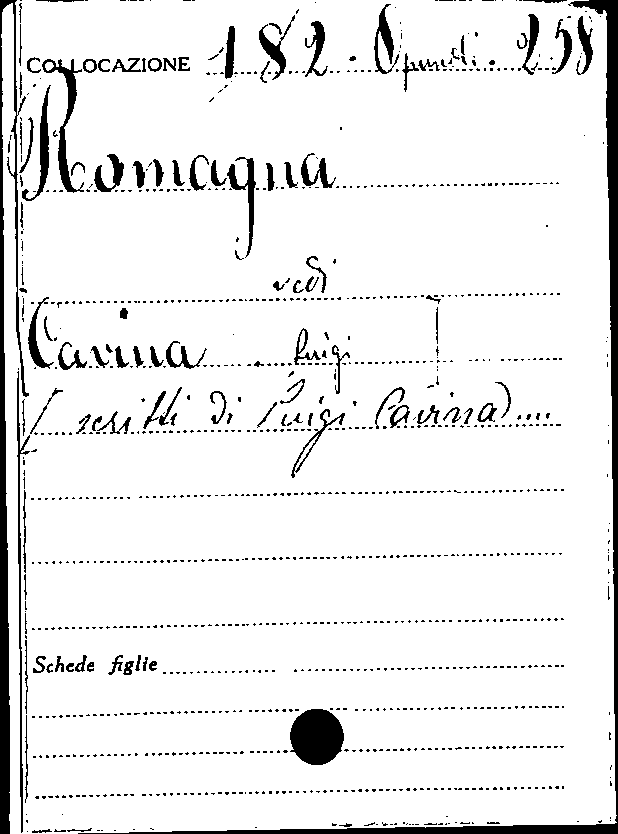 COLLOCAZIONE 182. Opuscoli. 258
Romagna
vedi
[Cavina . Luigi]
[scritti di Luigi Cavina)....
Schede figlie